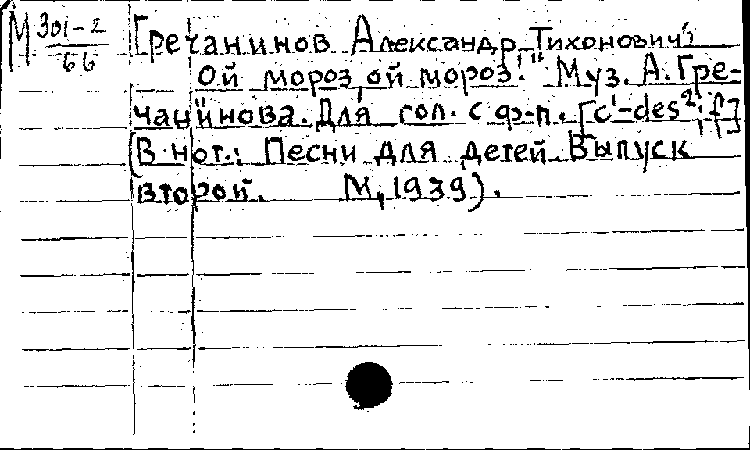 М 301-2
66
Гречанинов Александр Тихонович.
Ой мороз, ой мороз!" Муз. А. Гре-
чанинова. Для гол. с ф-п. [c'-des²; f]
(В нот.: Песни для детей. Выпуск
второй. М, 1939).